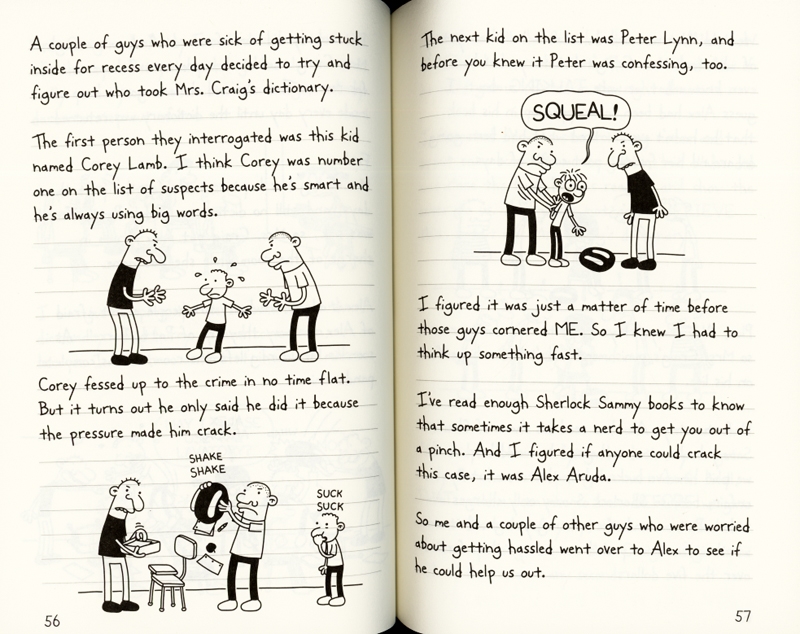 A couple of guys who were sick of getting stuck
inside for recess every day decided to try and
figure out who took Mrs. Craig's dictionary.
The first person they interrogated was this kid
named Corey Lamb. I think Corey was number
one on the list of suspects because he's smart and
he's always using big words.
Corey fessed up to the crime in no time flat.
But it turns out he only said he did it because
the pressure made him crack.
SHAKE
SHAKE
SUCK
SUCK
56
The next kid on the list was Peter Lynn, and
before you knew it Peter was confessing, too.
SQUEAL!
I figured it was just a matter of time before
those guys cornered ME. So I knew I had to
think up something fast.
I've read enough Sherlock Sammy books to know
that sometimes it takes a nerd to get you out of
a pinch. And I figured if anyone could crack
this case, it was Alex Aruda.
So me and a couple of other guys who were worried
about getting hassled went over to Alex to see if
he could help us out.
57